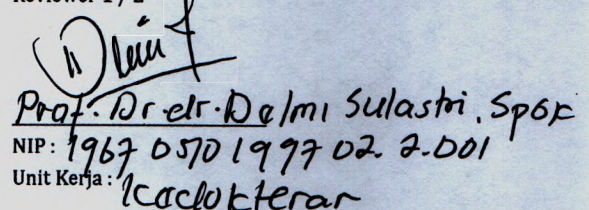 Reviewer 1 / 2
Prof. Dr. dr. Delmi Sulastri, SpGK
NIP : 1967 0510 1997 02. 2.001
Unit Kerja : Kedokteran